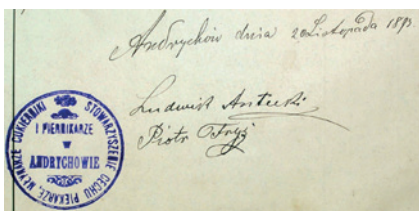 Andrychów dnia 20 Listopada 1893.
Ludwik
Piotr Fryś
STOWARZYSZENIE CECHU PIEKARZE, MŁYNARZE CUKIERNIKI
I PIERNIKARZE
W
ANDRYCHOWIE